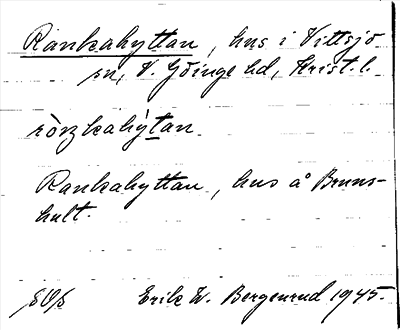 Rankahyttan, hus i Vittsjö
sn, V. Göinge hd, Krist. l.
Rankahyttan, hus å Bruns-
hult.
Erik W. Bergenrud 1945.